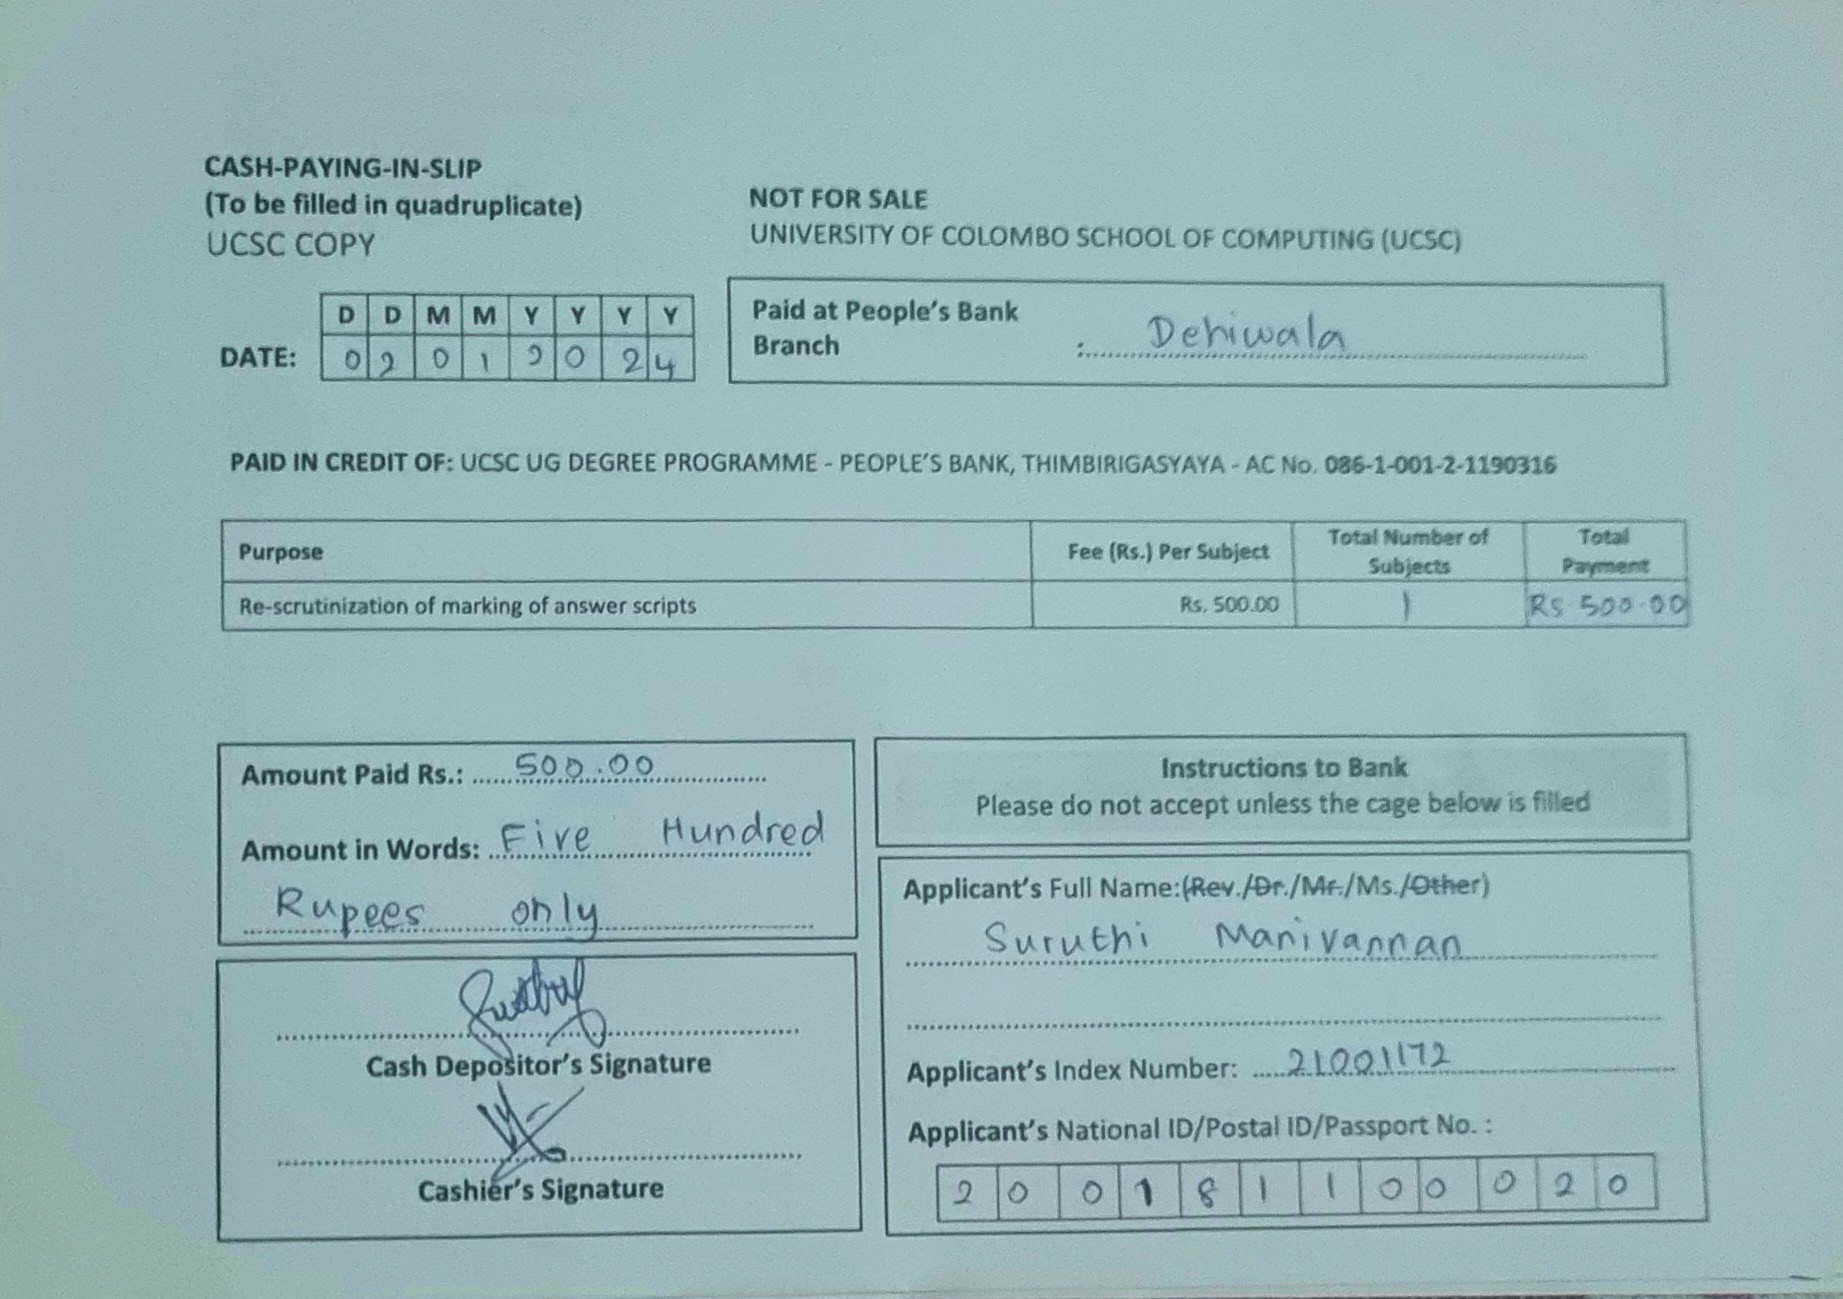 CASH-PAYING-IN-SLIP
(To be filled in quadruplicate)
UCSC COPY
NOT FOR SALE
UNIVERSITY OF COLOMBO SCHOOL OF COMPUTING (UCSC)
D D M M Y Y Y Y
DATE: 0 2 0 1 2 0 2 4
Paid at People's Bank
Branch : Dehiwala
PAID IN CREDIT OF: UCSC UG DEGREE PROGRAMME - PEOPLE'S BANK, THIMBIRIGASYAYA - AC No. 086-1-001-2-1190316
Purpose Fee (Rs.) Per Subject Total Number of Subjects Total Payment
Re-scrutinization of marking of answer scripts Rs. 500.00 1 Rs 500.00
Amount Paid Rs.: 500.00
Amount in Words: Five Hundred
Rupees only
Cash Depositor's Signature
Cashier's Signature
Instructions to Bank
Please do not accept unless the cage below is filled
Applicant's Full Name:(Rev./Dr./Mr./Ms./Other)
Suruthi Manivannan
Applicant's Index Number: 21001172
Applicant's National ID/Postal ID/Passport No. :
2 0 0 1 8 1 1 0 0 0 2 0